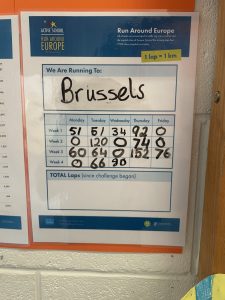 ACTIVE SCHOOL
RUN AROUND
EUROPE
Run Around Europe
5 laps = 1 km
We Are Running To:
Brussels
Monday Tuesday Wednesday Thursday Friday
Week 1 51 51 34 92 0
Week 2 0 120 0 74 0
Week 3 60 64 0 152 76
Week 4 0 66 90
TOTAL Laps (since challenge began)